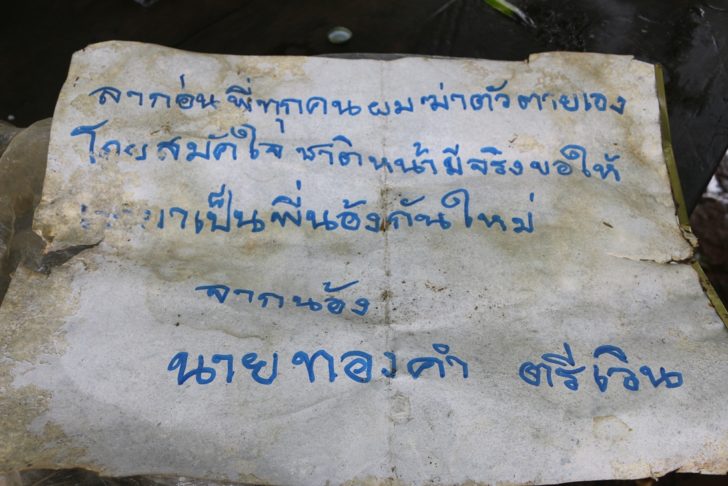 ลาก่อนพี่ทุกคน ผมฆ่าตัวตายเอง
โดยสมัคใจ ชาติหน้ามีจริงขอให้
มาเป็นพี่น้องกันใหม่
จากน้อง
นายทองคำ ตรีเวิน